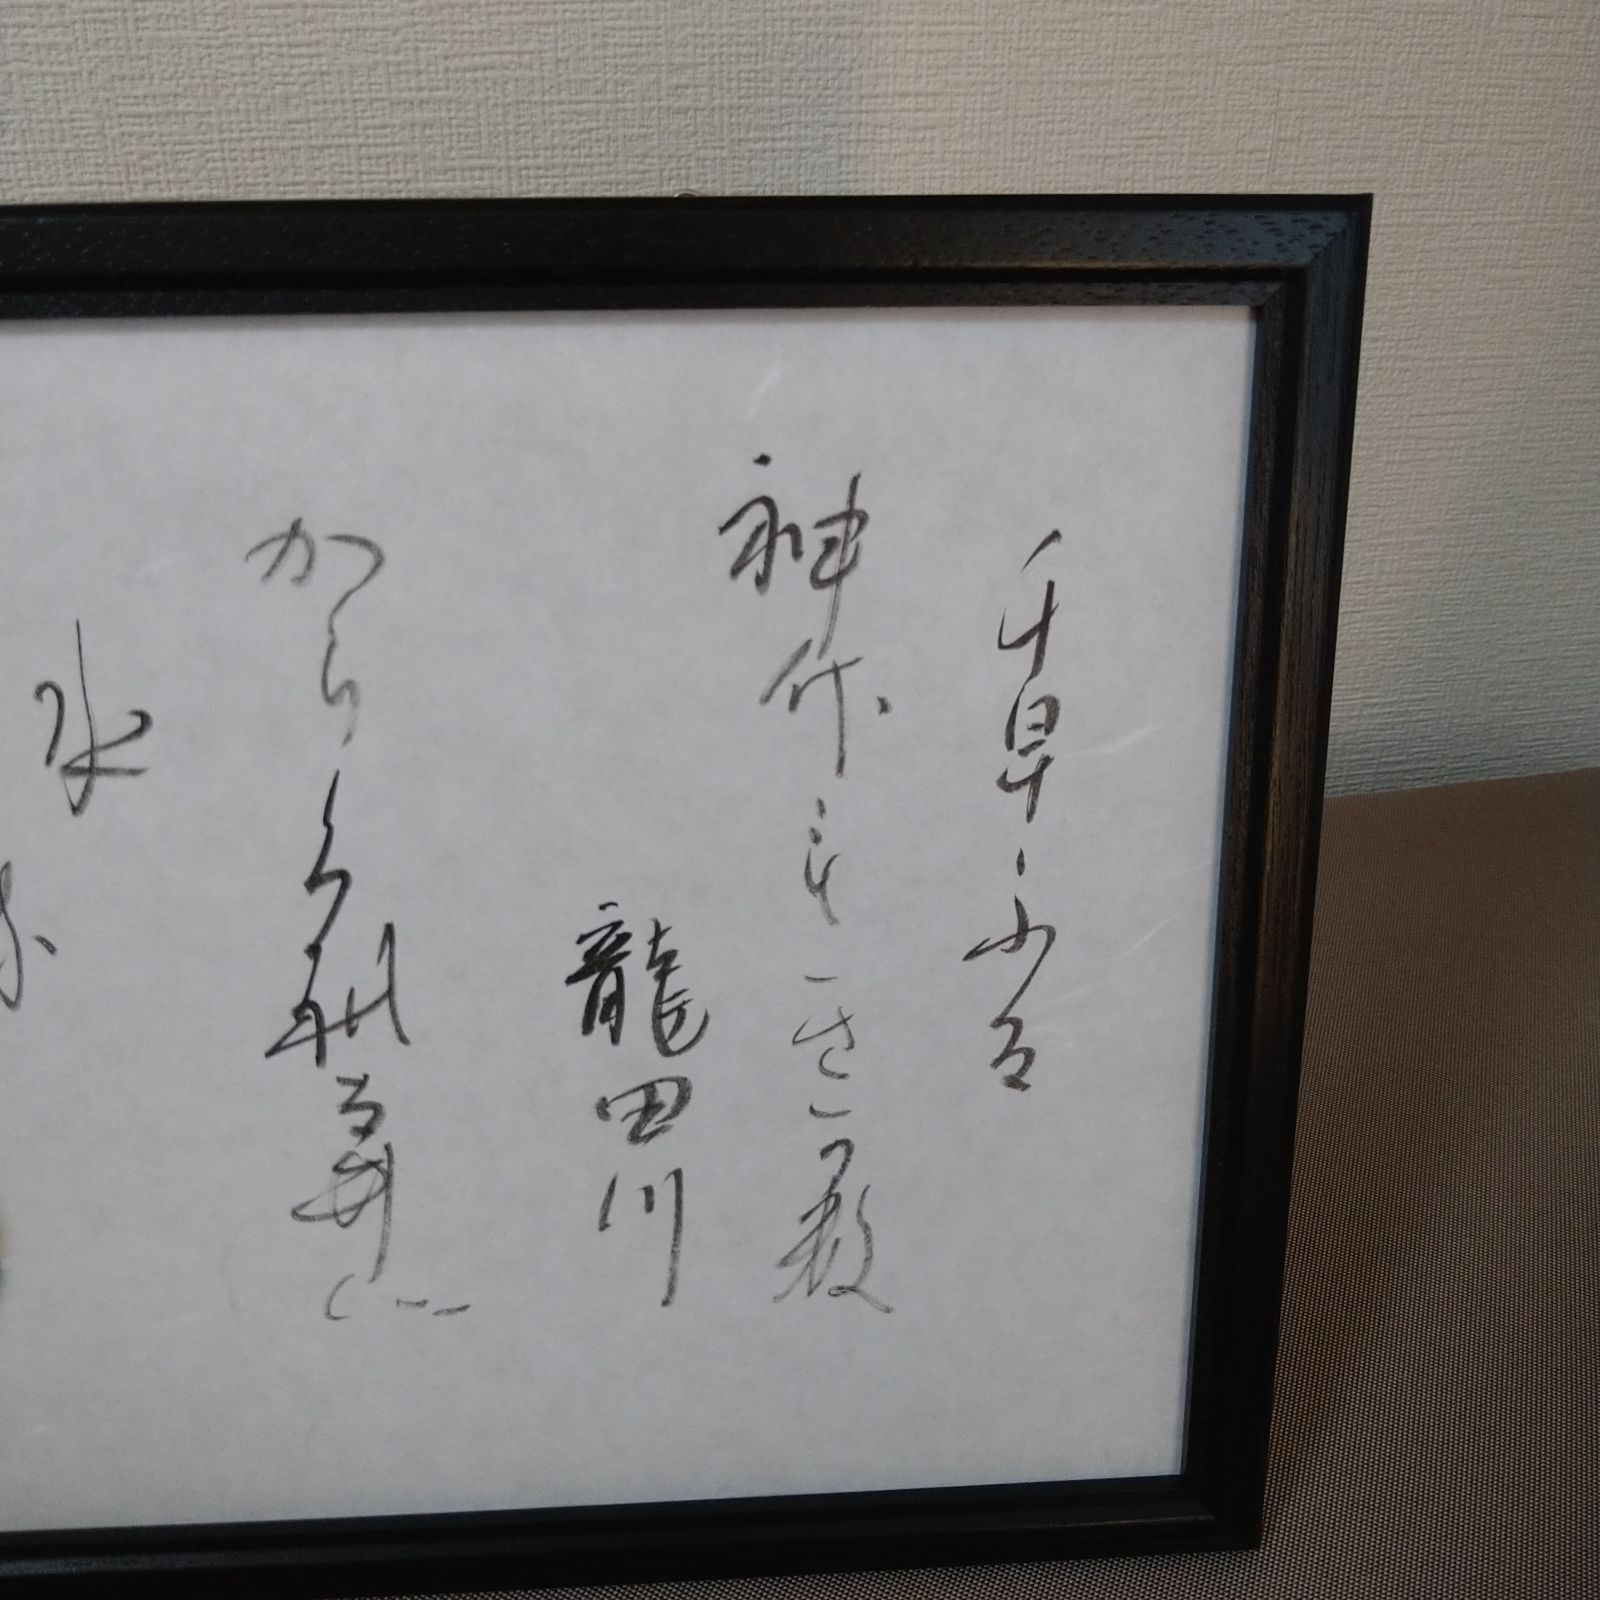 千早ふる
神代もきか数
龍田川
からくれなゐに
水